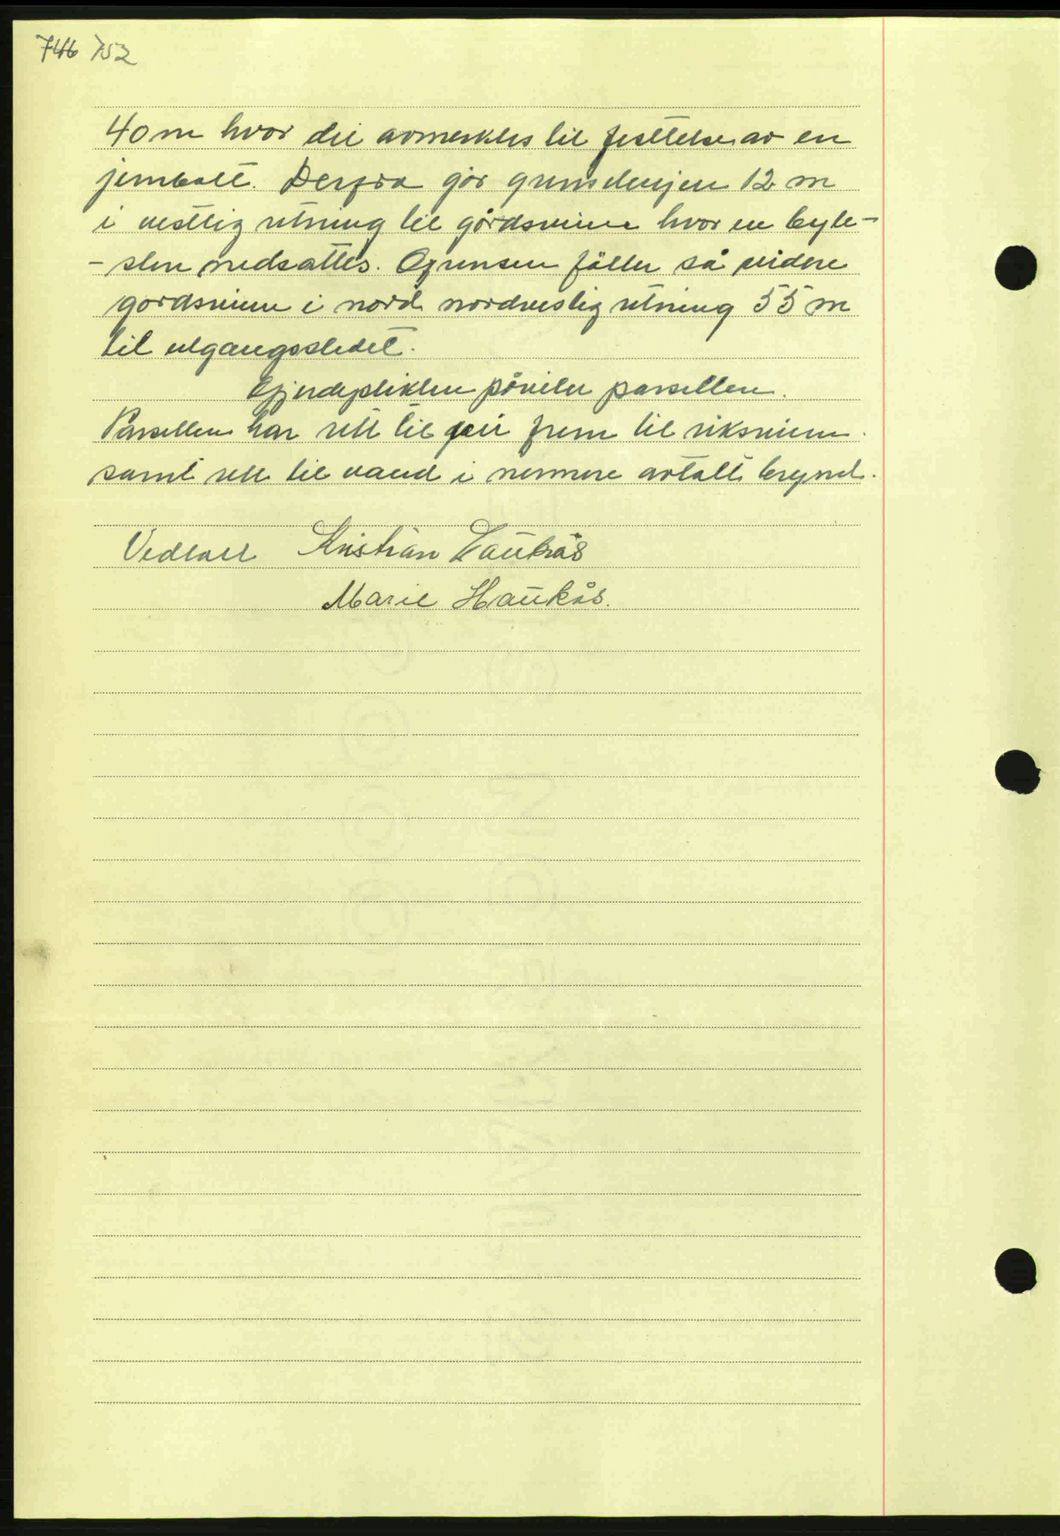 746 752
40 m hvor det avmerktes til festtelse av en
jernbolt. Derfra går grenselinjen 12 m
i vestlig retning til gårdsveien hvor en byte-
-sten nedsattes. Grensen föller så videre
gårdsveien i nord nordvestlig retning 55 m
til utgangsstedet.
Gjerdeplikten påviler parsellen.
Parsellen har rett til vei frem til riksveien
samt rett til vand i nermere avtalt brynd.
Vedtatt Kristian Haukås
Marie Haukås.